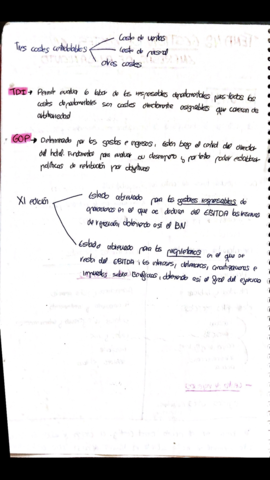 Tres costes controlables
Coste de ventas
Coste de personal
otros costes
TDI → Permite evaluar la labor de los responsables departamentales pues todos los
costes departamentales son costes directamente asignables que carecen de
arbitrariedad
GOP → Determinado por los gastos e ingresos, están bajo el control del director
del hotel. Fundamental para evaluar su desempeño y por tanto poder establecer
políticas de retribución por objetivos
XI edición
Estado abreviado para los gestores responsables de
operaciones en el que se deducen del EBITDA las reservas
de reposición, obteniendo así el BN
Estado abreviado para los propietarios en el que se
resta del EBITDA: los intereses, amortizaciones e
impuestos sobre Beneficios, obteniendo así el final del ejercicio